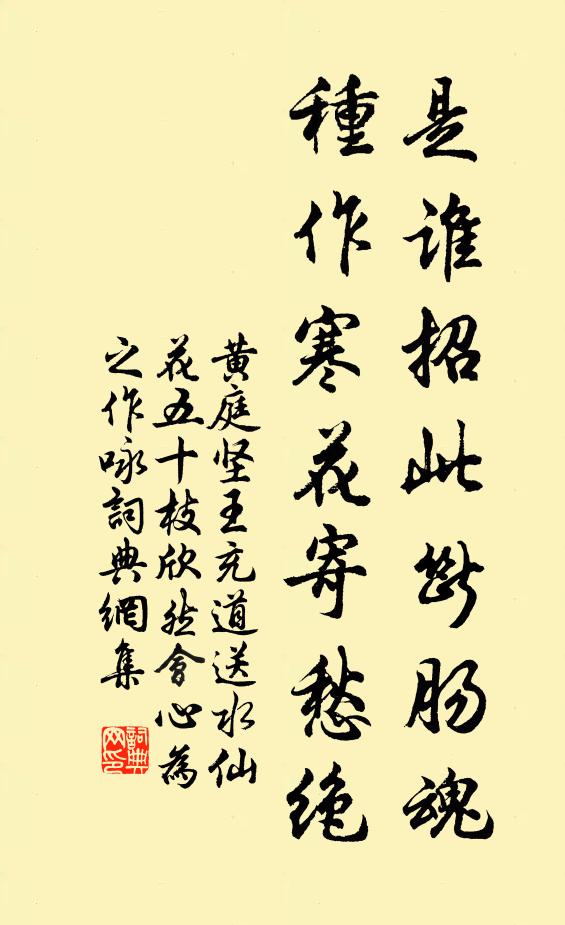 是谁招此断肠魂
種作寒花寄愁绝
黄庭坚王充道送水仙
花五十枝欣然會心為
之作咏詞典網集
詞典
网印